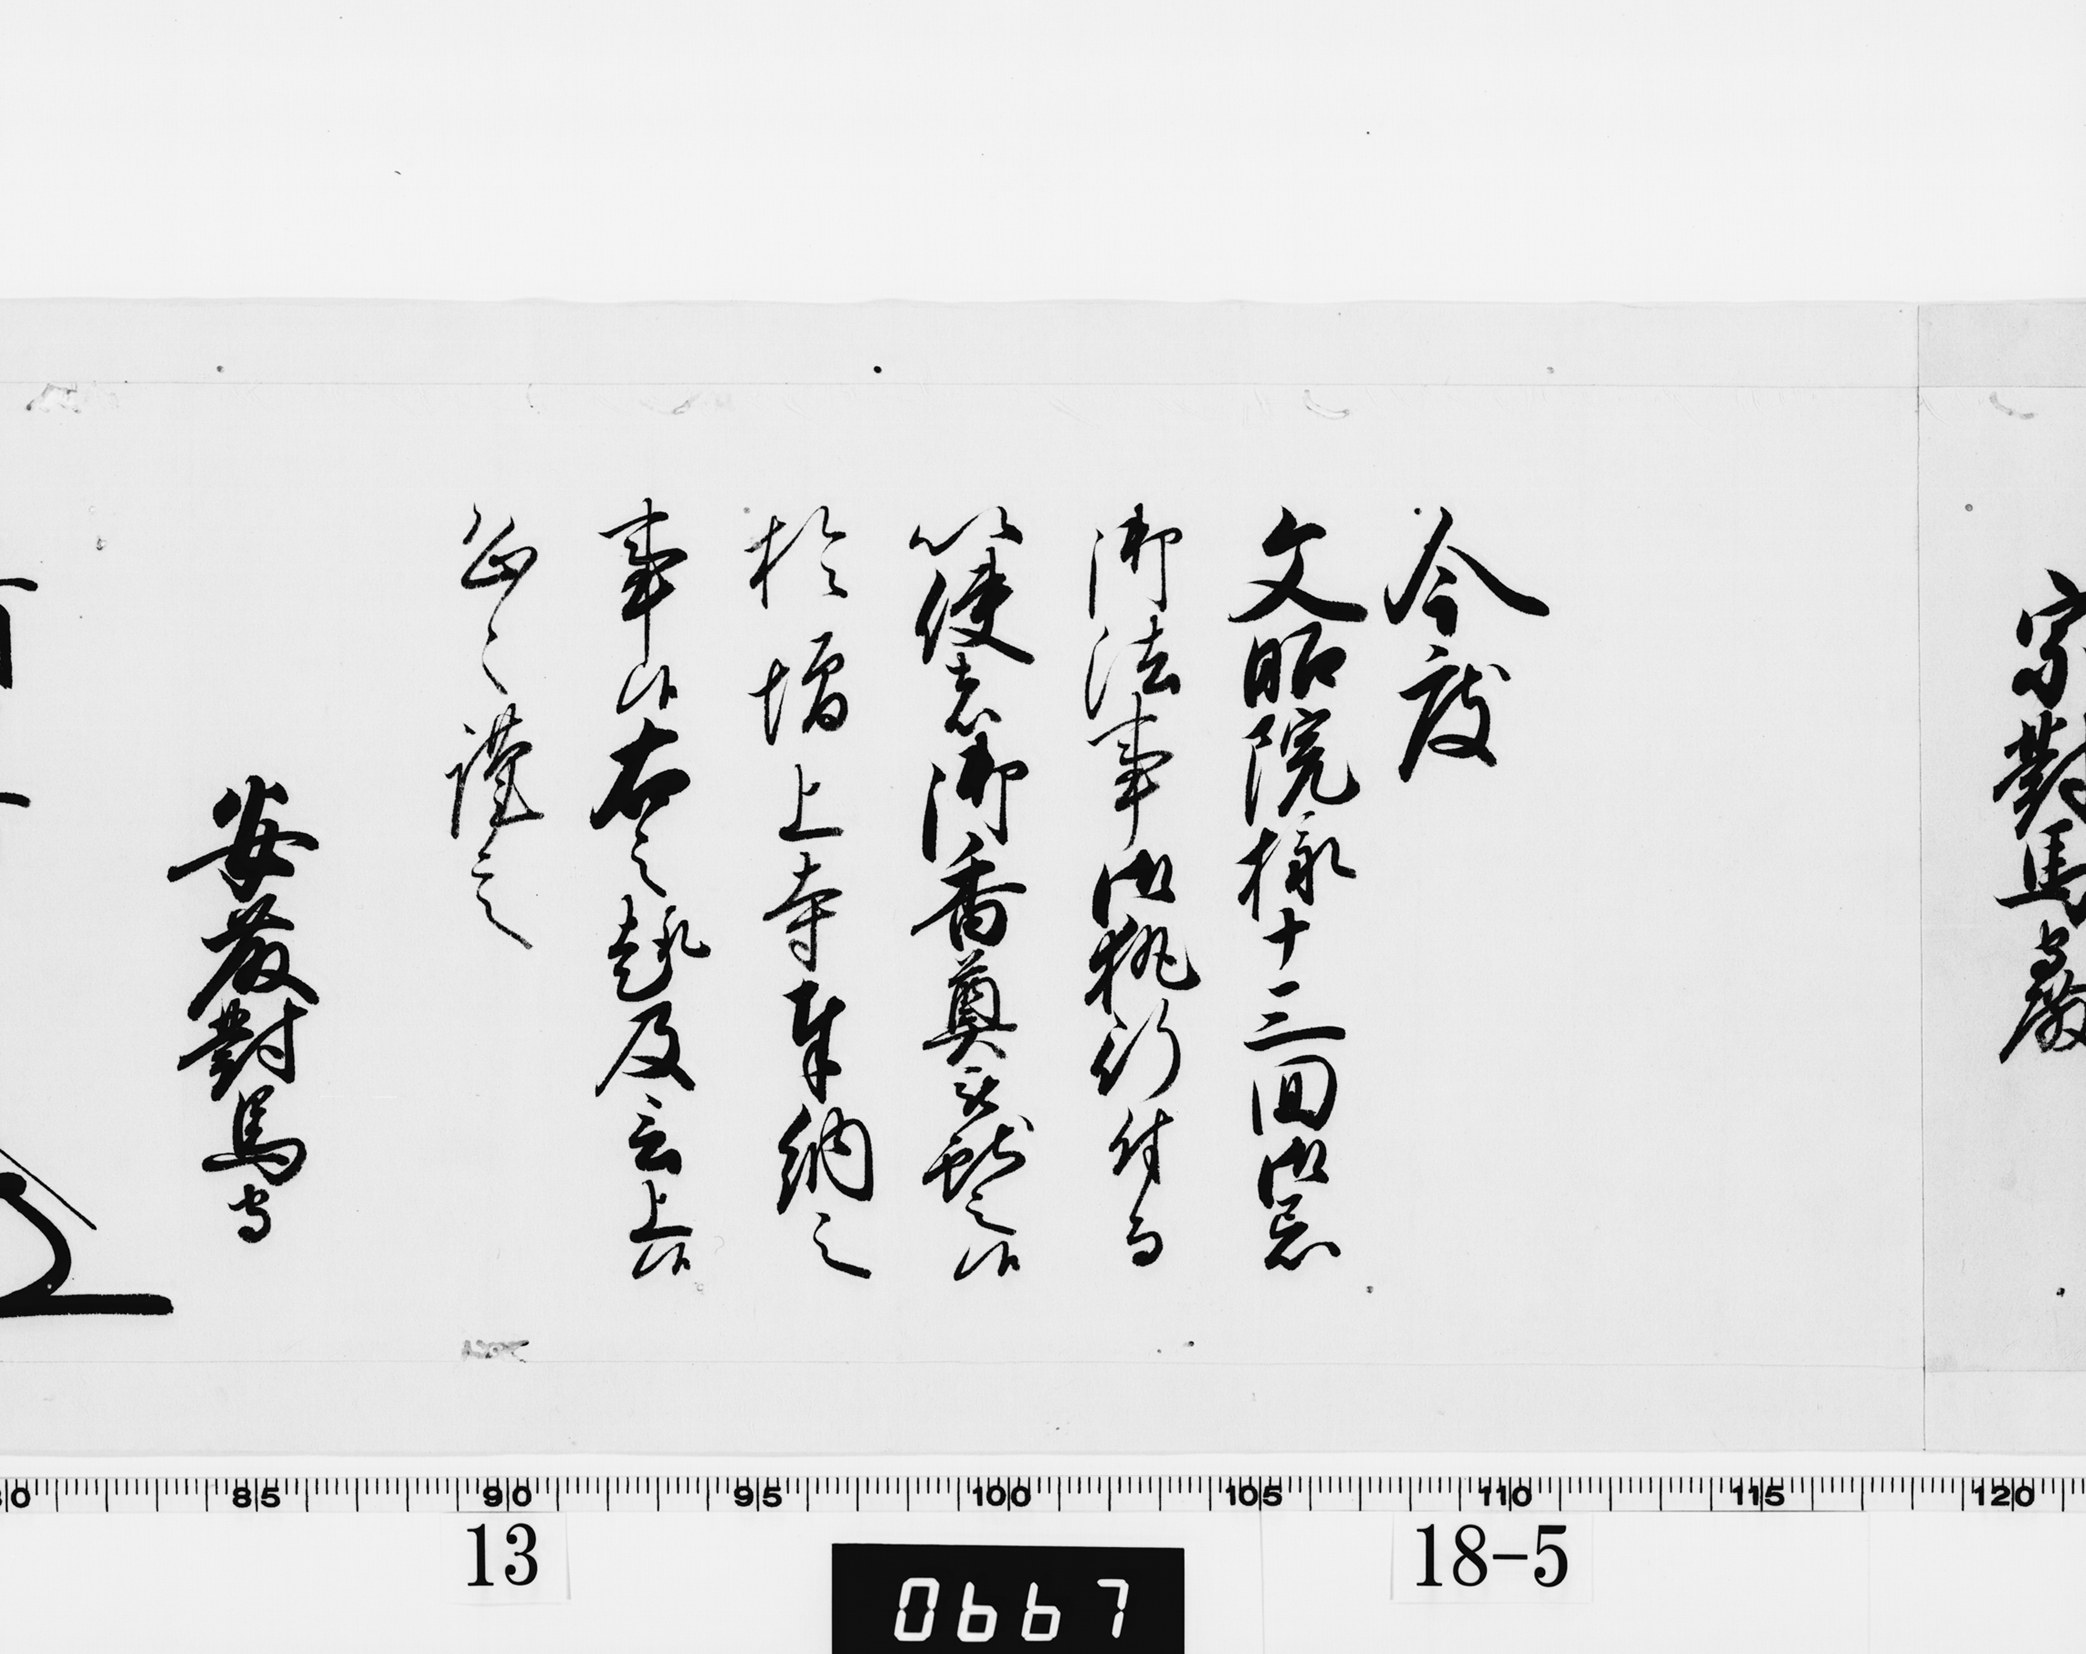 宗對馬守殿
今度
文昭院様十三回御忌
御法事御執行付而
以使者御香奠被献之候
於増上寺奉納之
事候右之趣及言上候
恐々謹言
安藤對馬守
80 85 90 95 100 105 110 115 120
13
0667
18-5